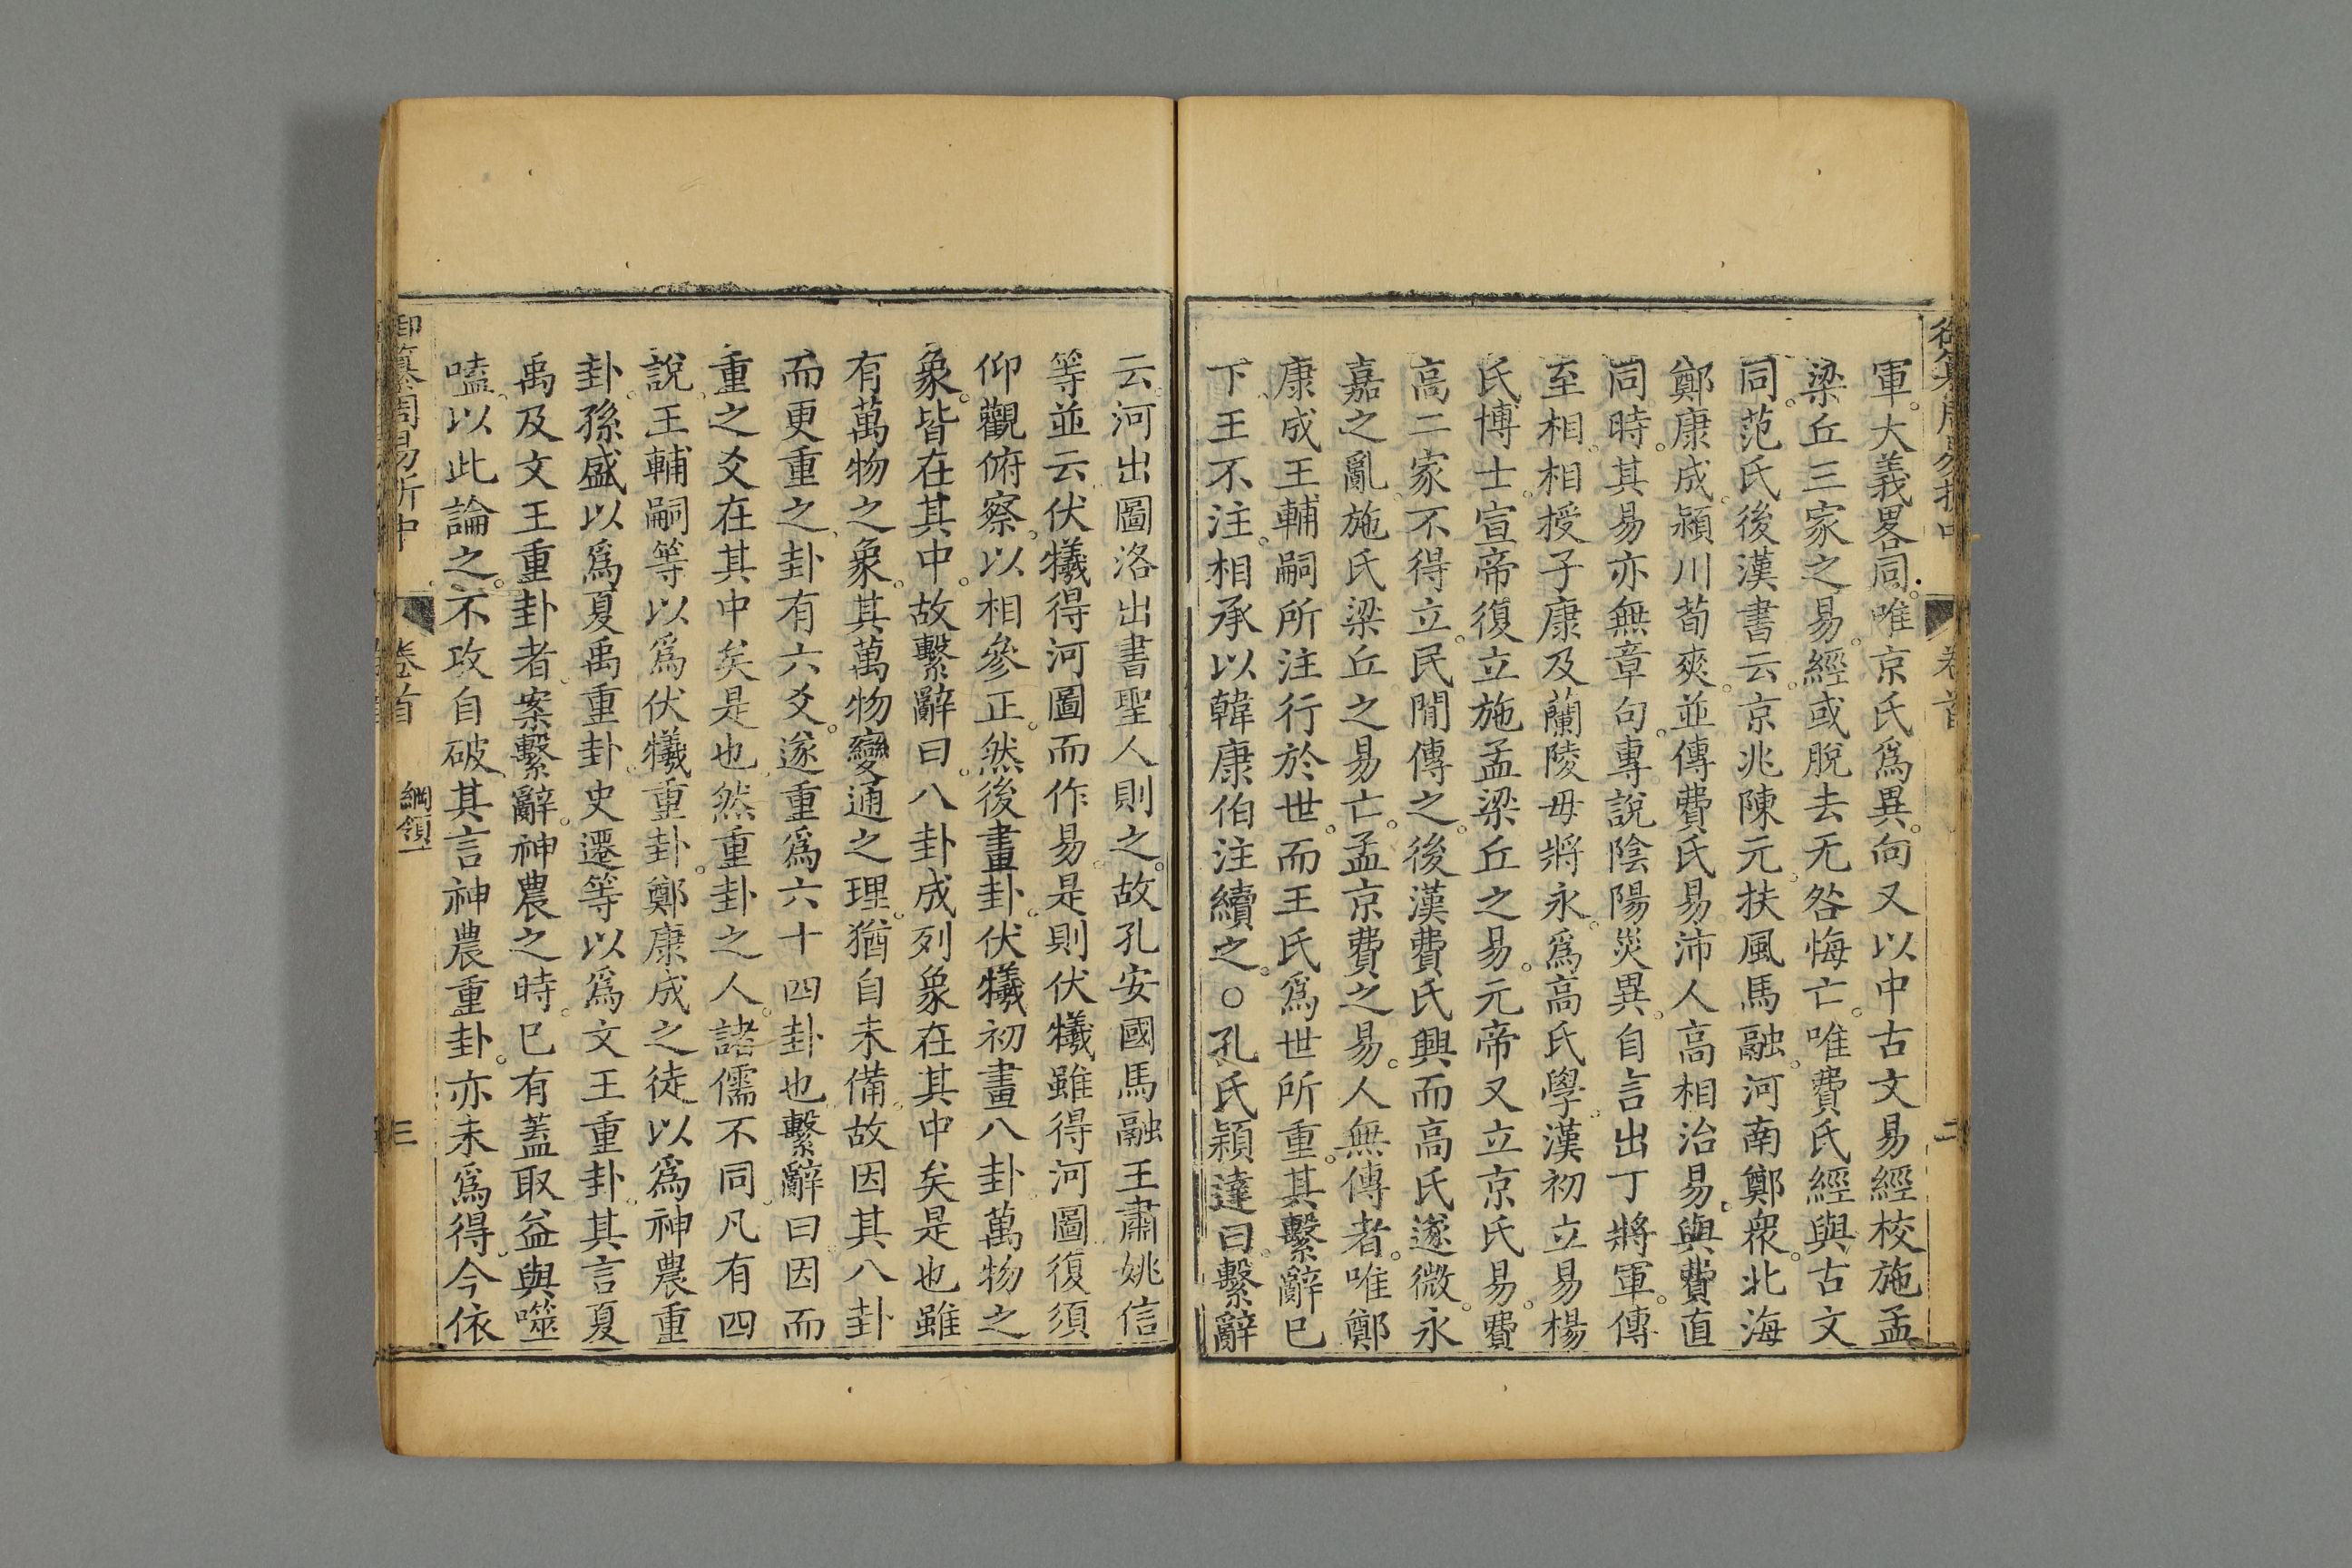 軍。大義畧同。唯京氏爲異。向又以中古文易經校施孟
梁丘三家之易。經或脫去无咎悔亡。唯費氏經與古文
同。范氏後漢書云。京兆陳元。扶風馬融。河南鄭衆。北海
鄭康成。潁川荀爽。並傳費氏易。沛人高相治易。與費直
同時。其易亦無章句。專說陰陽災異。自言出丁將軍。傳
至相。相授子康及蘭陵毋將永。爲高氏學。漢初立易楊
氏博士。宣帝復立施孟梁丘之易。元帝又立京氏易。費
高二家不得立。民閒傳之。後漢費氏興而高氏遂微。永
嘉之亂。施氏梁丘之易亡。孟京費之易。人無傳者。唯鄭
康成王輔嗣所注行於世。而王氏爲世所重。其繫辭已
下。王不注。相承以韓康伯注續之。○孔氏穎達曰。繫辭
卷首
云。河出圖洛出書聖人則之。故孔安國馬融王肅姚信
等並云。伏犧得河圖而作易。是則伏犧雖得河圖。復須
仰觀俯察。以相參正。然後畫卦。伏犧初畫八卦。萬物之
象。皆在其中。故繫辭曰。八卦成列象在其中矣是也。雖
有萬物之象。其萬物變通之理。猶自未備。故因其八卦
而更重之。卦有六爻。遂重爲六十四卦也。繫辭曰。因而
重之。爻在其中矣是也。然重卦之人。諸儒不同。凡有四
說。王輔嗣等以爲伏犧重卦。鄭康成之徒以爲神農重
卦。孫盛以爲夏禹重卦。史遷等以爲文王重卦。其言夏
禹及文王重卦者。案繫辭。神農之時。已有蓋取益與噬
嗑。以此論之。不攻自破。其言神農重卦。亦未爲得。今依
御纂周易折中
卷首
綱領一
三